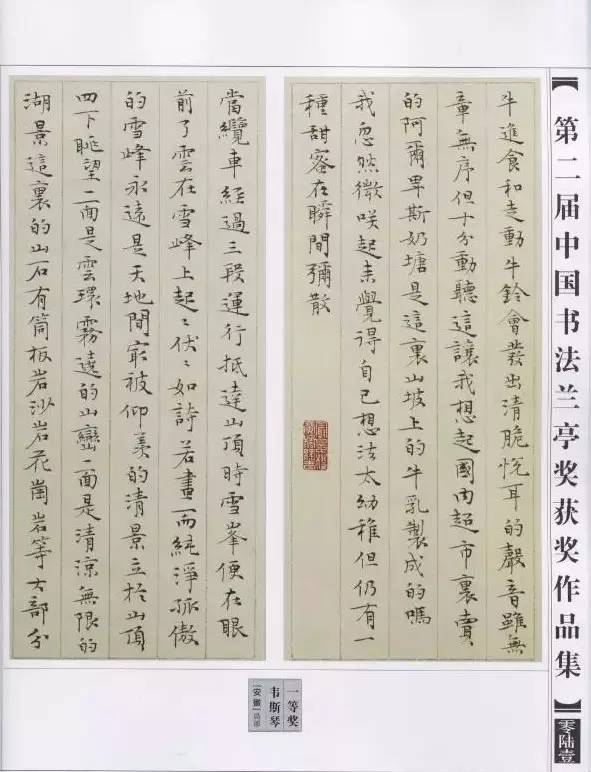 【第二届中国书法兰亭奖获奖作品集】
零陆壹
牛進食和走動牛鈴會發出清脆悦耳的聲音雖無
章無序但十分動聽這讓我想起國内超市裏賣
的阿爾卑斯奶塘是這裏山坡上的牛乳製成的嗎
我忽然微咲起来覺得自己想法太幼稚但仍有一
種甜蜜在瞬間彌散
當纜車经過三段運行抵達山頂時雪峯便在眼
前了雲在雪峰上起〻伏〻如詩若畫而純淨孤傲
的雪峰永遠是天地間最被仰羨的清景立於山頂
四下眺望二面是雲環霧遶的山巒一面是清涼無限的
湖景這裏的山石有筒板岩沙岩花崗岩等大部分
一等奖
韦斯琴
［安徽］